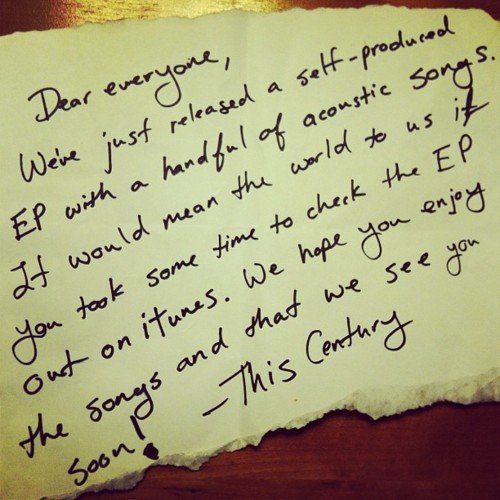 Dear everyone,
We've just released a self-produced
EP with a handful of acoustic songs.
It would mean the world to us if
you took some time to check the EP
out on itunes. We hope you enjoy
the songs and that we see you
soon!
-This Century